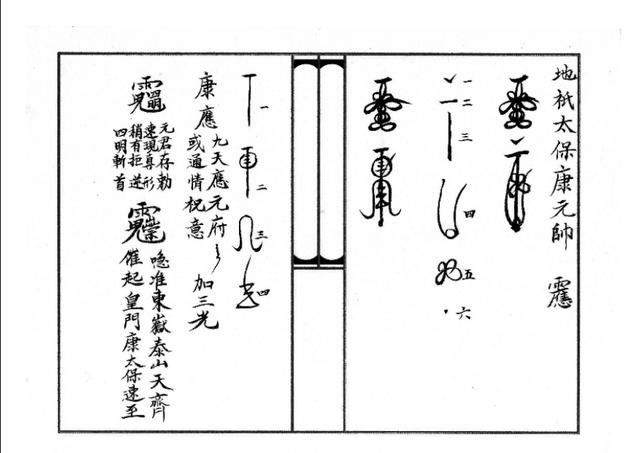 地祇太保康元帥
一
二
三
四
五
六
一
二
三
四
康應
九天應元府
或通情祝意
加三光
元君存勅
速現真形
稍有拒逆
四明斬首
唵准東嶽泰山天齊
催起皇門康太保速至